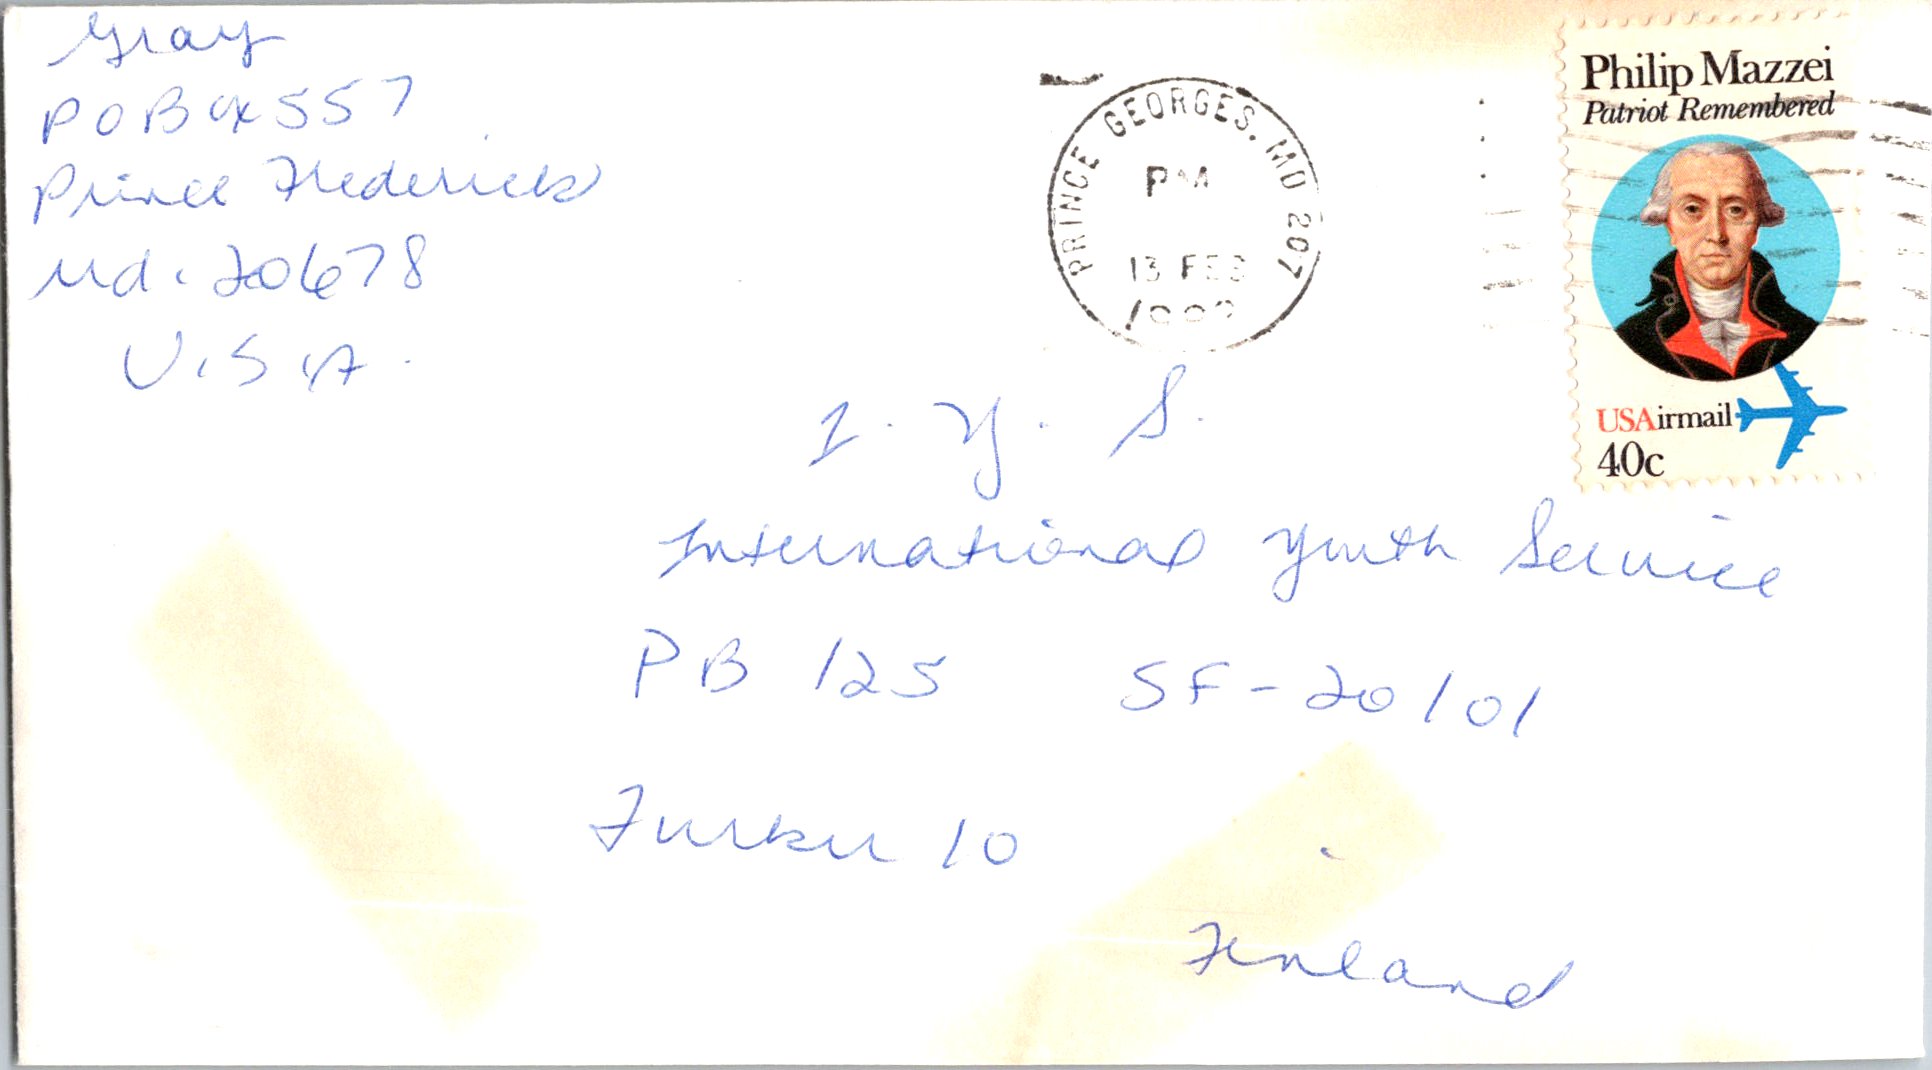 Gray
PO Box 557
Prince Frederick
Md. 20678
U.S.A.
PRINCE GEORGES, MD 207
PM
13 FEB
Philip Mazzei
Patriot Remembered
USAirmail
40c
I. Y. S.
International Youth Service
PB 125 SF-20101
Turku 10
Finland